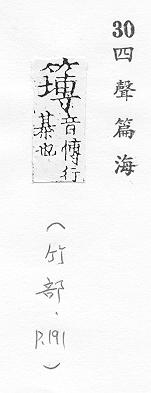 30四聲篇海
音愽行
棊也
（竹部．P.191）